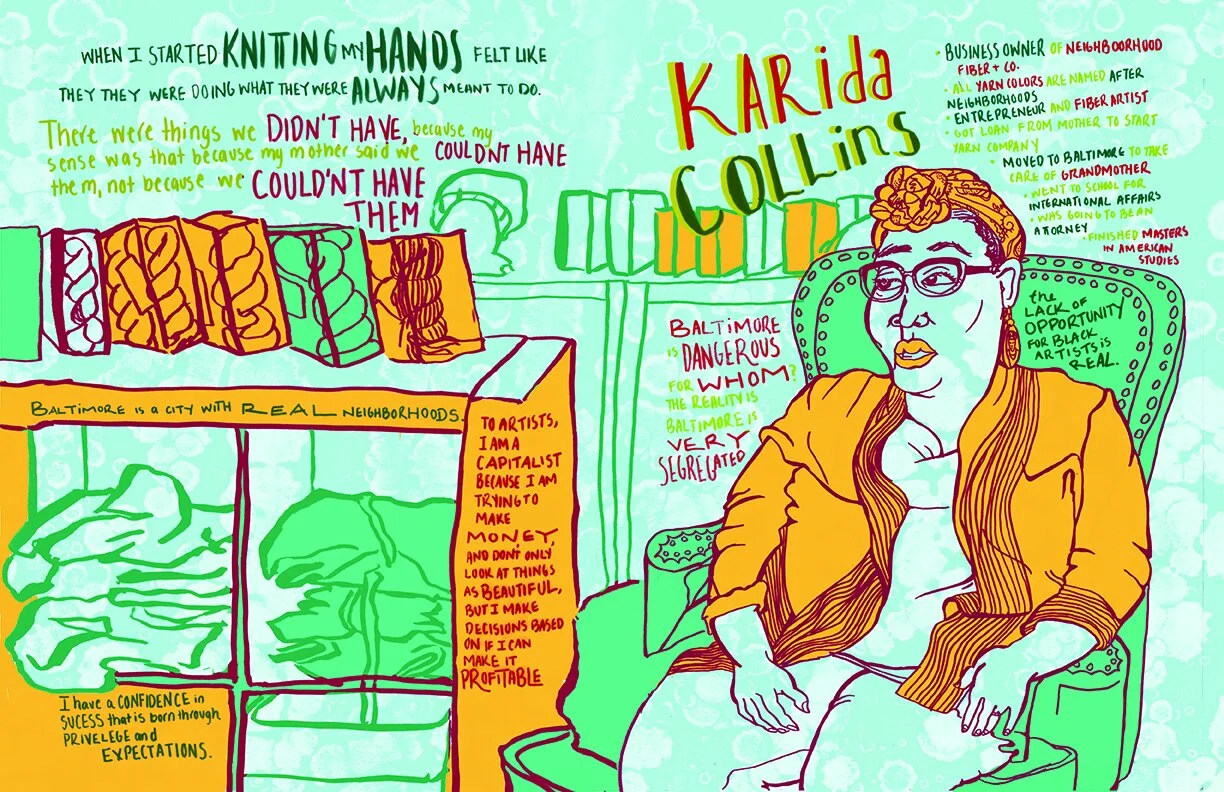 WHEN I STARTED KNITTING MY HANDS FELT LIKE
THEY THEY WERE DOING WHAT THEY WERE ALWAYS MEANT TO DO.
There were things we DIDN'T HAVE, because my
sense was that because my mother said we COULDNT HAVE
them, not because we COULD'NT HAVE
THEM
KARida
COLLins
• BUSINESS OWNER OF NEIGHBOORHOOD
FIBER + CO.
• ALL YARN COLORS ARE NAMED AFTER
NEIGHBORHOODS
• ENTREPRENEUR AND FIBER ARTIST
• GOT LOAN FROM MOTHER TO START
YARN COMPANY
• MOVED TO BALTIMORE TO TAKE
CARE OF GRANDMOTHER
• WENT TO SCHOOL FOR
INTERNATIONAL AFFAIRS
• WAS GOING TO BE AN
ATTORNEY
• FINISHED MASTERS
IN AMERICAN
STUDIES
the
LACK OF
OPPORTUNITY
FOR BLACK
ARTISTS IS
REAL.
BALTIMORE
IS DANGEROUS
FOR WHOM?
THE REALITY IS
BALTIMORE IS
VERY
SEGREGATED
BALTIMORE IS A CITY WITH REAL NEIGHBORHOODS.
TO ARTISTS,
I AM A
CAPITALIST
BECAUSE I AM
TRYING TO
MAKE
MONEY,
AND DONT ONLY
LOOK AT THINGS
AS BEAUTIFUL,
BUT I MAKE
DECISIONS BASED
ON IF I CAN
MAKE IT
PROFITABLE
I have a CONFIDENCE in
SUCESS that is born through
PRIVELEGE and
EXPECTATIONS.